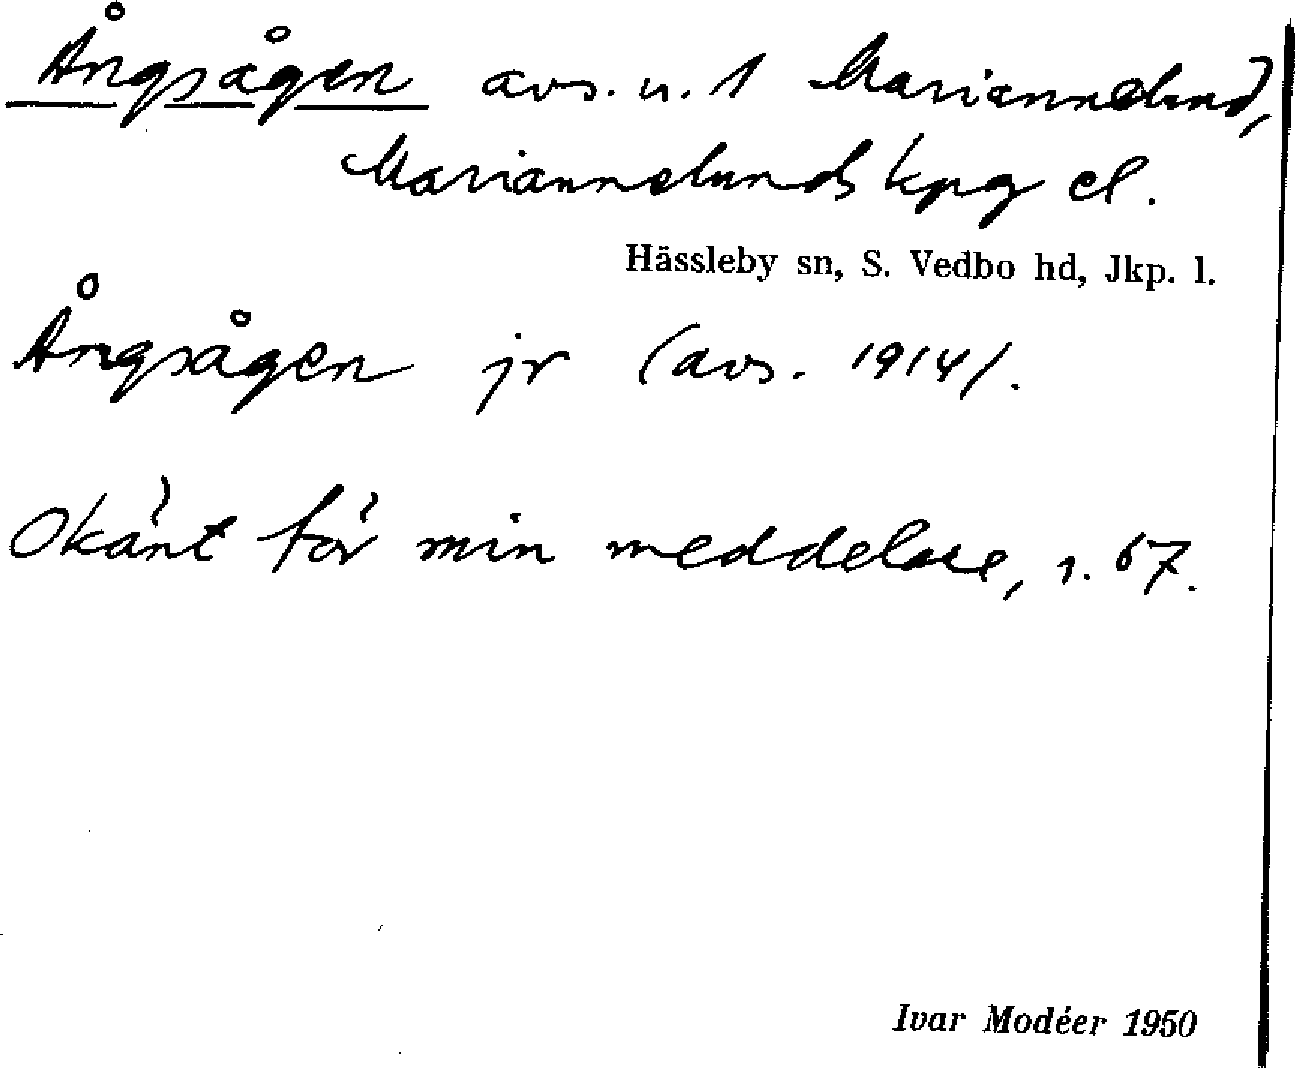 Ångsågen avs. u. 1 Mariannelund,
Mariannelunds kpg el.
Hässleby sn, S. Vedbo hd, Jkp. l.
Ångsågen jr (avs. 1914).
Okänt för min meddelare, s. 67.
Ivar Modéer 1950